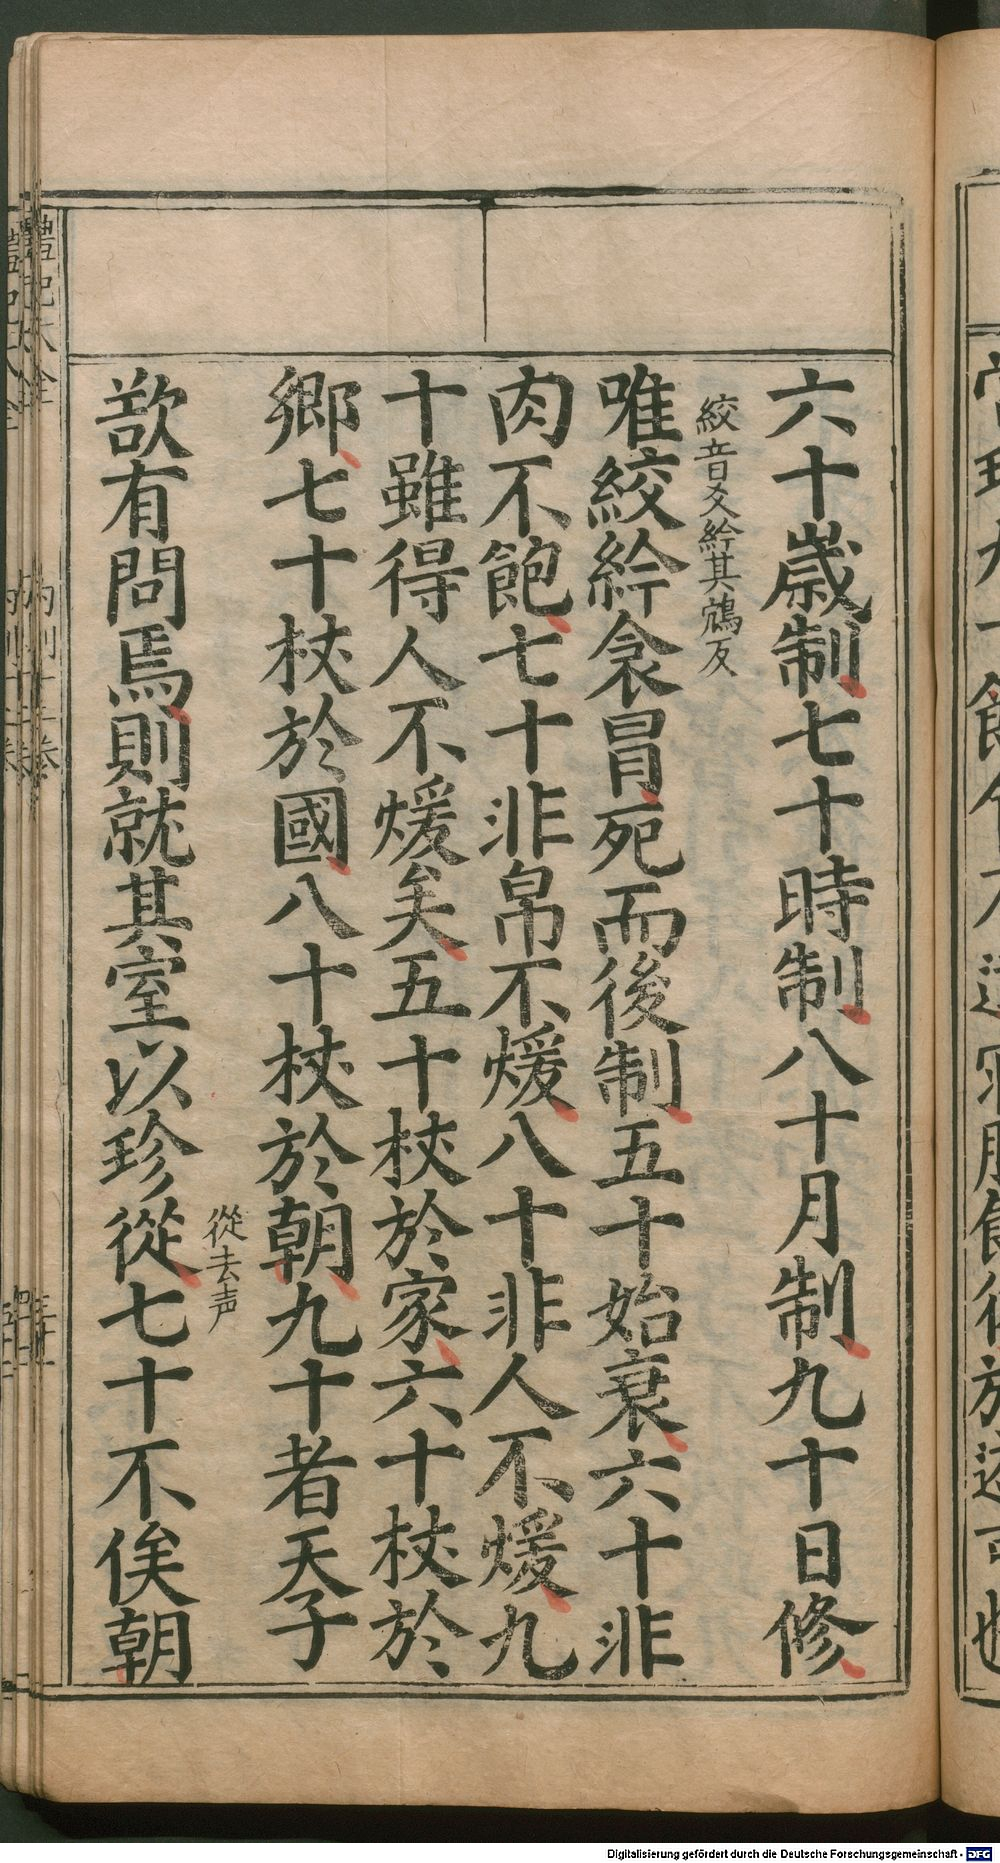 六十歲制七十時制八十月制九十日修
絞音爻紟其鴆反
唯絞紟衾冒死而後制五十始衰六十非
肉不飽七十非帛不煖八十非人不煖九
十雖得人不煖矣五十杖於家六十杖於
鄉七十杖於國八十杖於朝九十者天子
從去声
欲有問焉則就其室以珍從七十不俟朝
Digitalisierung gefördert durch die Deutsche Forschungsgemeinschaft - DFG